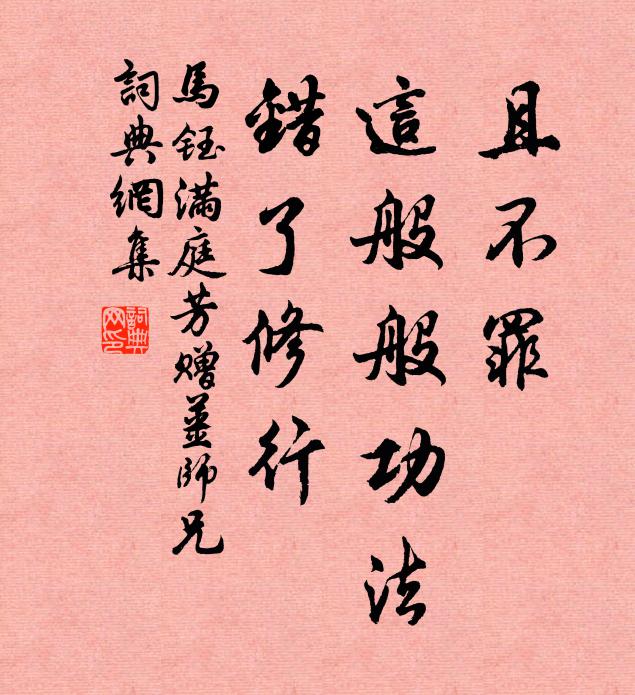 且不罪
這般般功法
錯了修行
馬鈺滿庭芳贈姜師兄
詞典網集
詞典网印